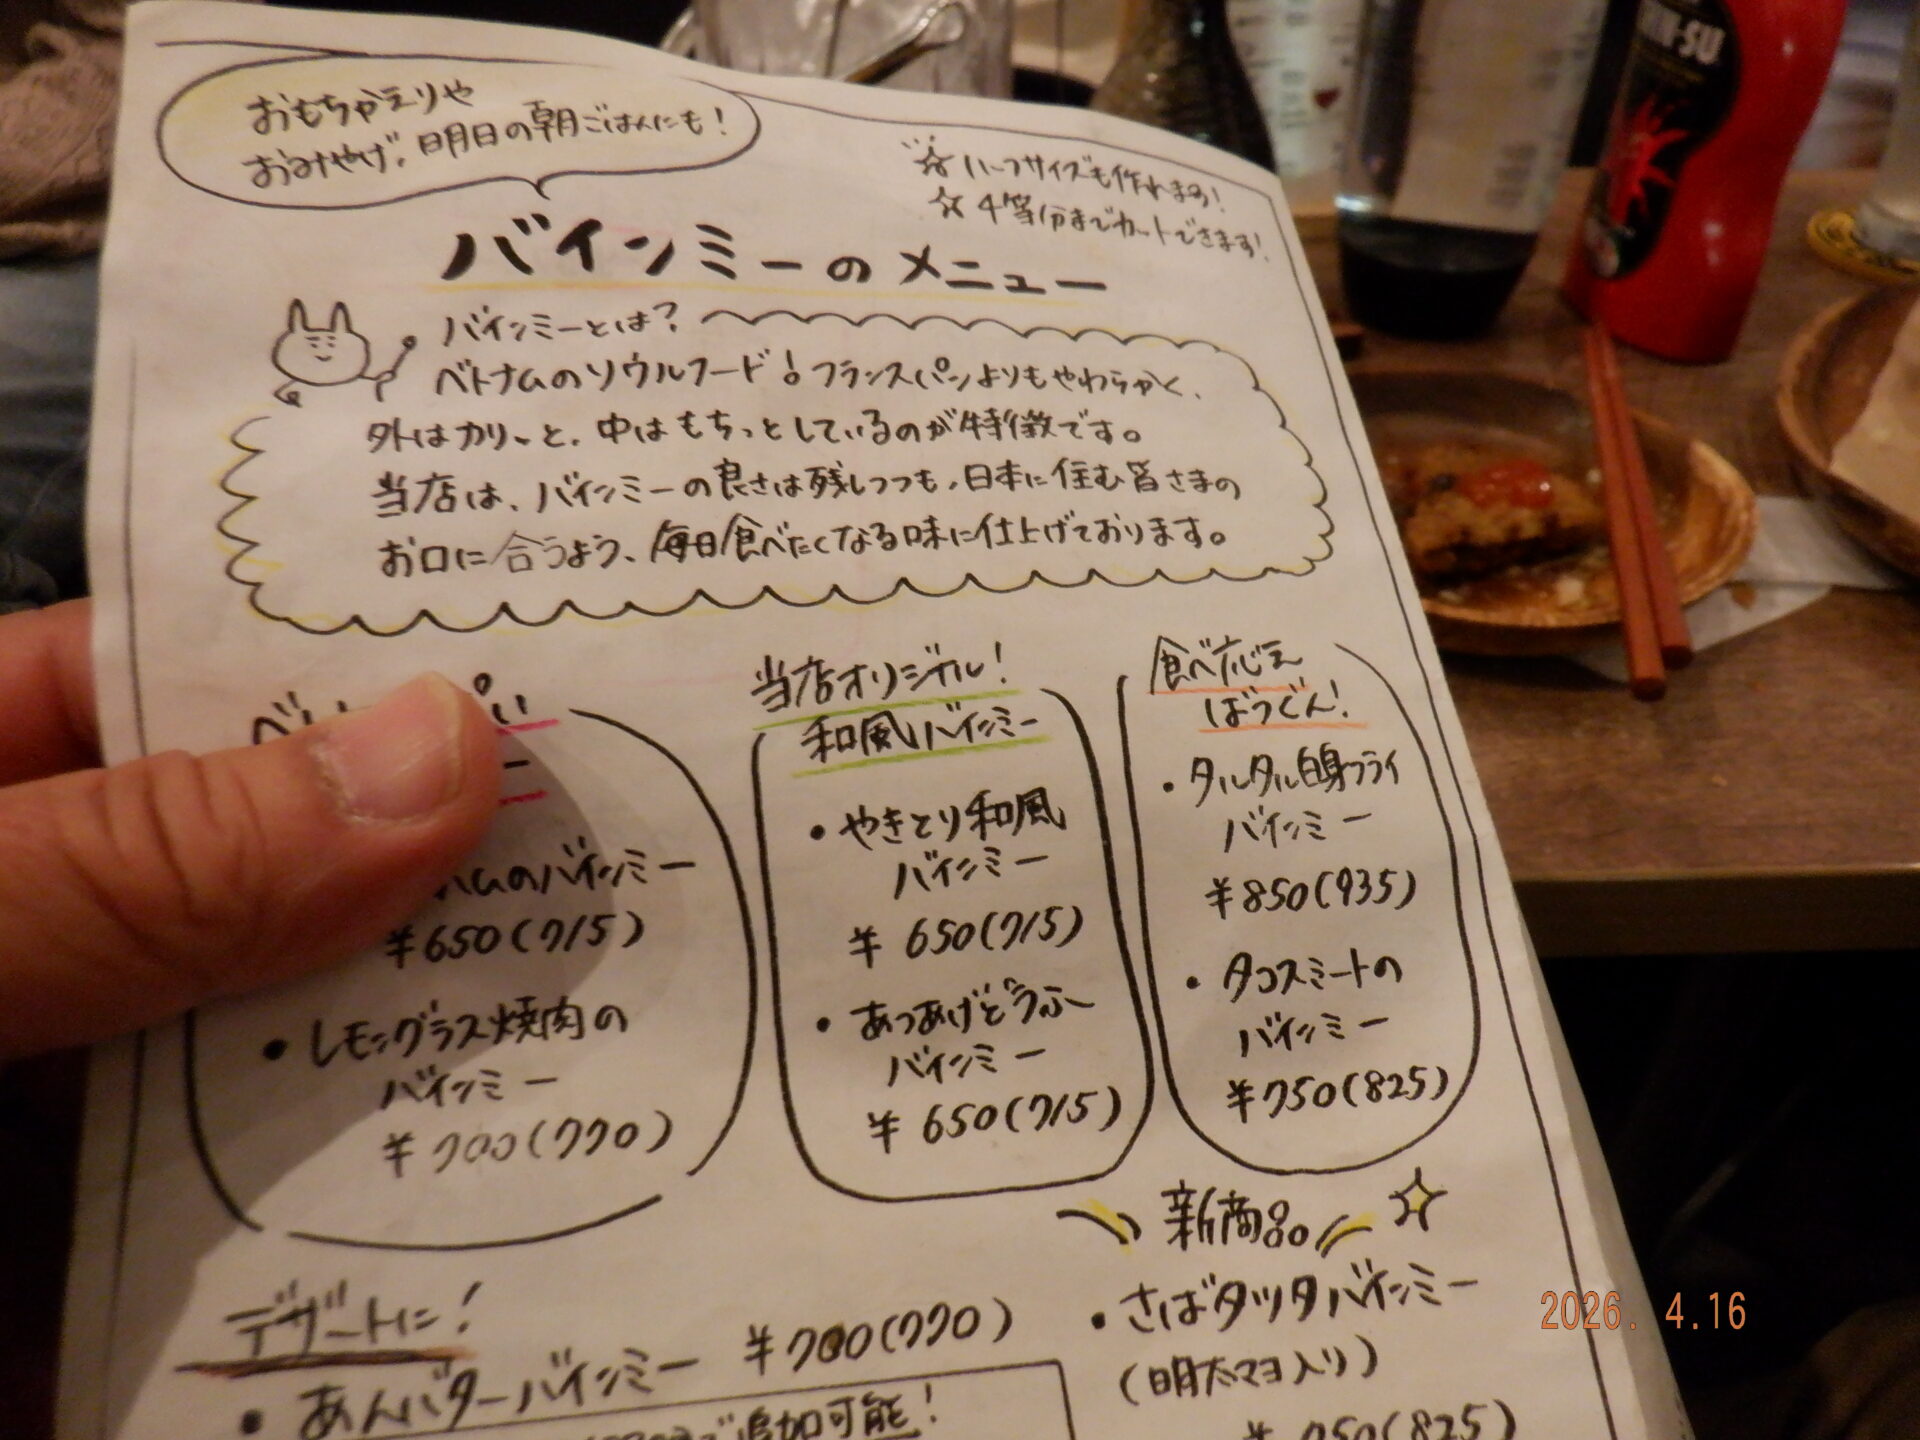 おもちかえりや
おみやげ、明日の朝ごはんにも!
☆ ハーフサイズも作れます!
☆ 4等分までカットできます!
バインミーのメニュー
バインミーとは?
ベトナムのソウルフード!フランスパンよりもやわらかく、
外はカリッと、中はもちっとしているのが特徴です。
当店は、バインミーの良さは残しつつも、日本に住む皆さまの
お口に合うよう、毎日食べたくなる味に仕上げております。
ハムのバインミー
¥650(715)
・レモングラス焼肉の
バインミー
¥700(770)
当店オリジナル!
和風バインミー
・やきとり和風
バインミー
¥650(715)
・あつあげどうふ
バインミー
¥650(715)
食べ応え
ばつぐん!
・タルタル白身フライ
バインミー
¥850(935)
・タコスミートの
バインミー
¥750(825)
デザートに!
・あんバターバインミー ¥700(770)
追加可能!
新商品
・さばタツタバインミー
(明太マヨ入り)
¥750(825)
IN-SU
2026. 4.16